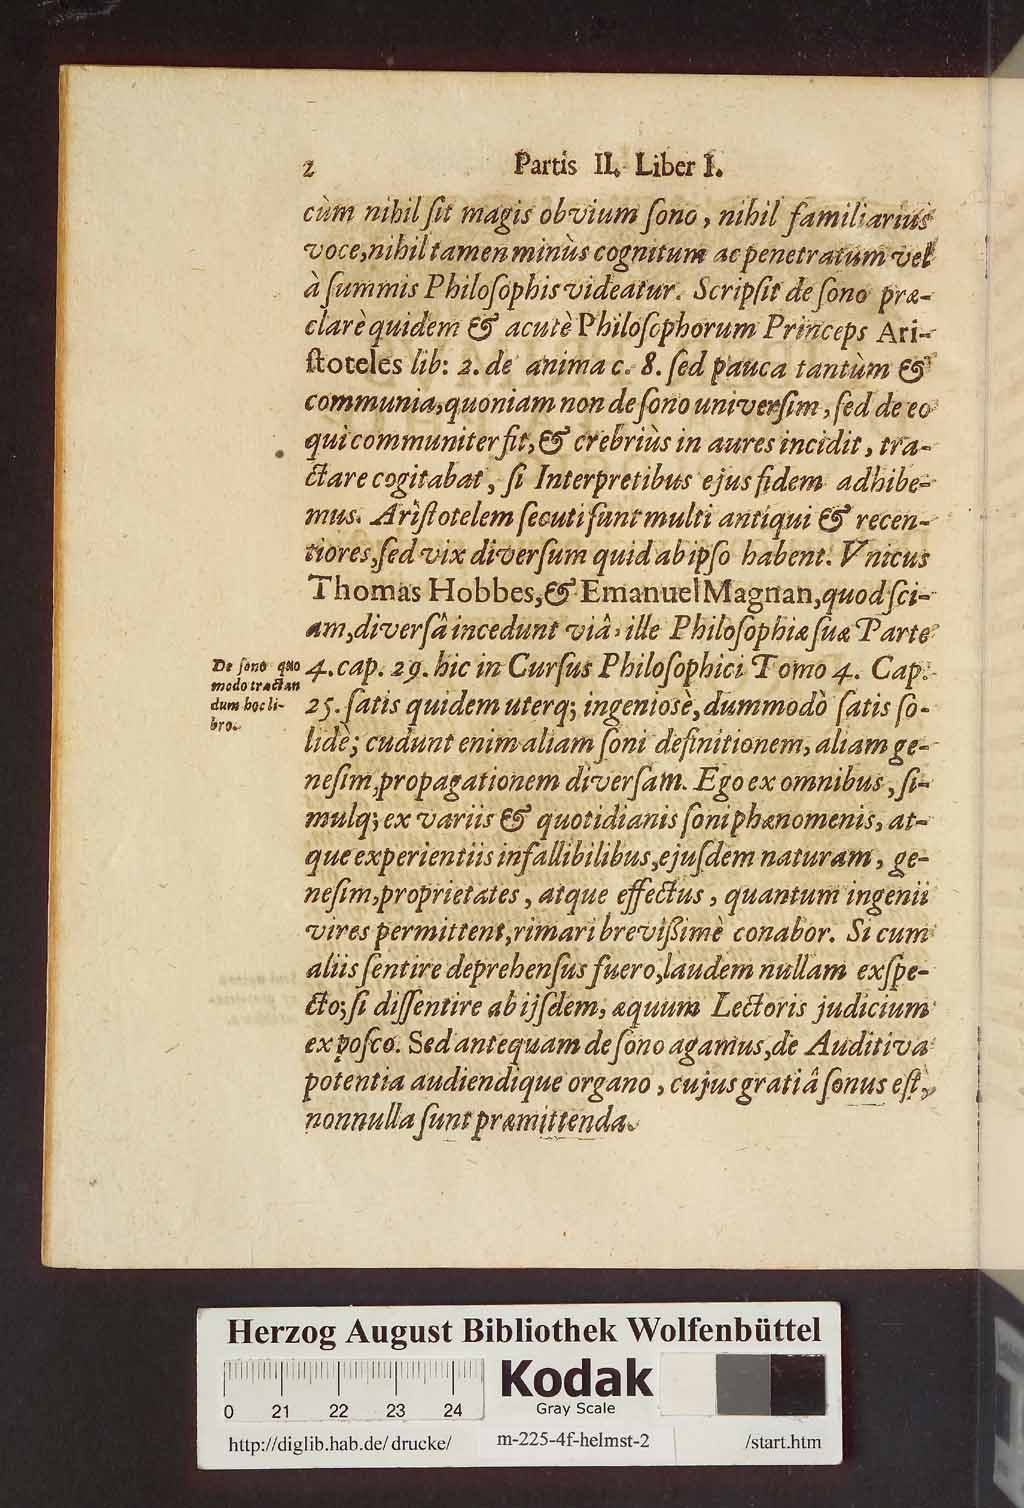 2 Partis II. Liber I.
cùm nihil ſit magis obvium ſono, nihil familiarius
voce, nihil tamen minùs cognitum ac penetratum vel
à ſummis Philoſophis videatur. Scripſit de ſono præ-
clarè quidem & acutè Philoſophorum Princeps Ari-
ſtoteles lib: 2. de anima c. 8. ſed pauca tantùm &
communia, quoniam non de ſono univerſim, ſed de eo
qui communiter fit, & crebriùs in aures incidit, tra-
ctare cogitabat, ſi Interpretibus ejus fidem adhibe-
mus. Ariſtotelem ſecuti ſunt multi antiqui & recen-
tiores, ſed vix diverſum quid ab ipſo habent. Vnicus
Thomas Hobbes, & Emanuel Magnan, quod ſci-
am, diverſâ incedunt viâ, ille Philoſophiæ ſuæ Parte
4. cap. 29. hic in Curſus Philoſophici Tomo 4. Cap.
25. ſatis quidem uterq; ingeniosè, dummodò ſatis ſo-
lidè; cudunt enim aliam ſoni definitionem, aliam ge-
neſim, propagationem diverſam. Ego ex omnibus, ſi-
mulq; ex variis & quotidianis ſoni phænomenis, at-
que experientiis infallibilibus, ejuſdem naturam, ge-
neſim, proprietates, atque effectus, quantum ingenii
vires permittent, rimari breviſſimè conabor. Si cum
aliis ſentire deprehenſus fuero, laudem nullam exſpe-
cto; ſi diſſentire ab ijſdem, æquum Lectoris judicium
expoſco. Sed antequam de ſono agamus, de Auditiva
potentia audiendique organo, cujus gratiâ ſonus eſt,
nonnulla ſunt præmittenda.
De ſono quo
modo tractan
dum hoc li-
bro.
Herzog August Bibliothek Wolfenbüttel
0 21 22 23 24
Kodak
Gray Scale
http://diglib.hab.de/drucke/ m-225-4f-helmst-2 /start.htm